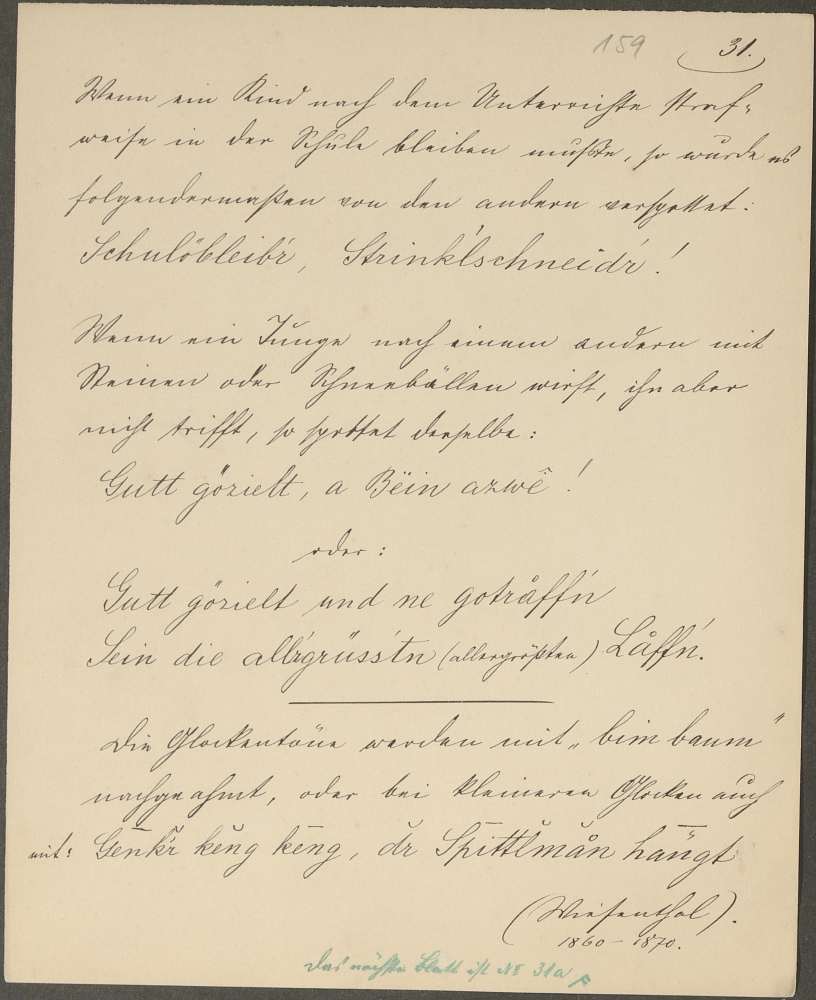 159 31.
Wenn ein Kind nach dem Unterrichte straf-
weise in der Schule bleiben mußte, so wurde es
folgendermaßen von den andern verspottet:
Schulöbleib'r, Strink'lschneid'r!
Wenn ein Junge nach einem andern mit
Steinen oder Schneebällen wirft, ihn aber
nicht trifft, so spottet derselbe:
Gutt gözielt, a Bëin azwê!
oder:
Gutt gözielt und ne goträff'n
Sein die all'rgrüss'tn (allergrößten) Låff'n.
Die Glockentöne werden mit „bim baum"
nachgeahmt, oder bei kleineren Glocken auch
mit: Genk'r keng keng, dr Spittlmån hängt
(Wiesenthal).
1860 - 1870.
Das nächste Blatt ist № 31a